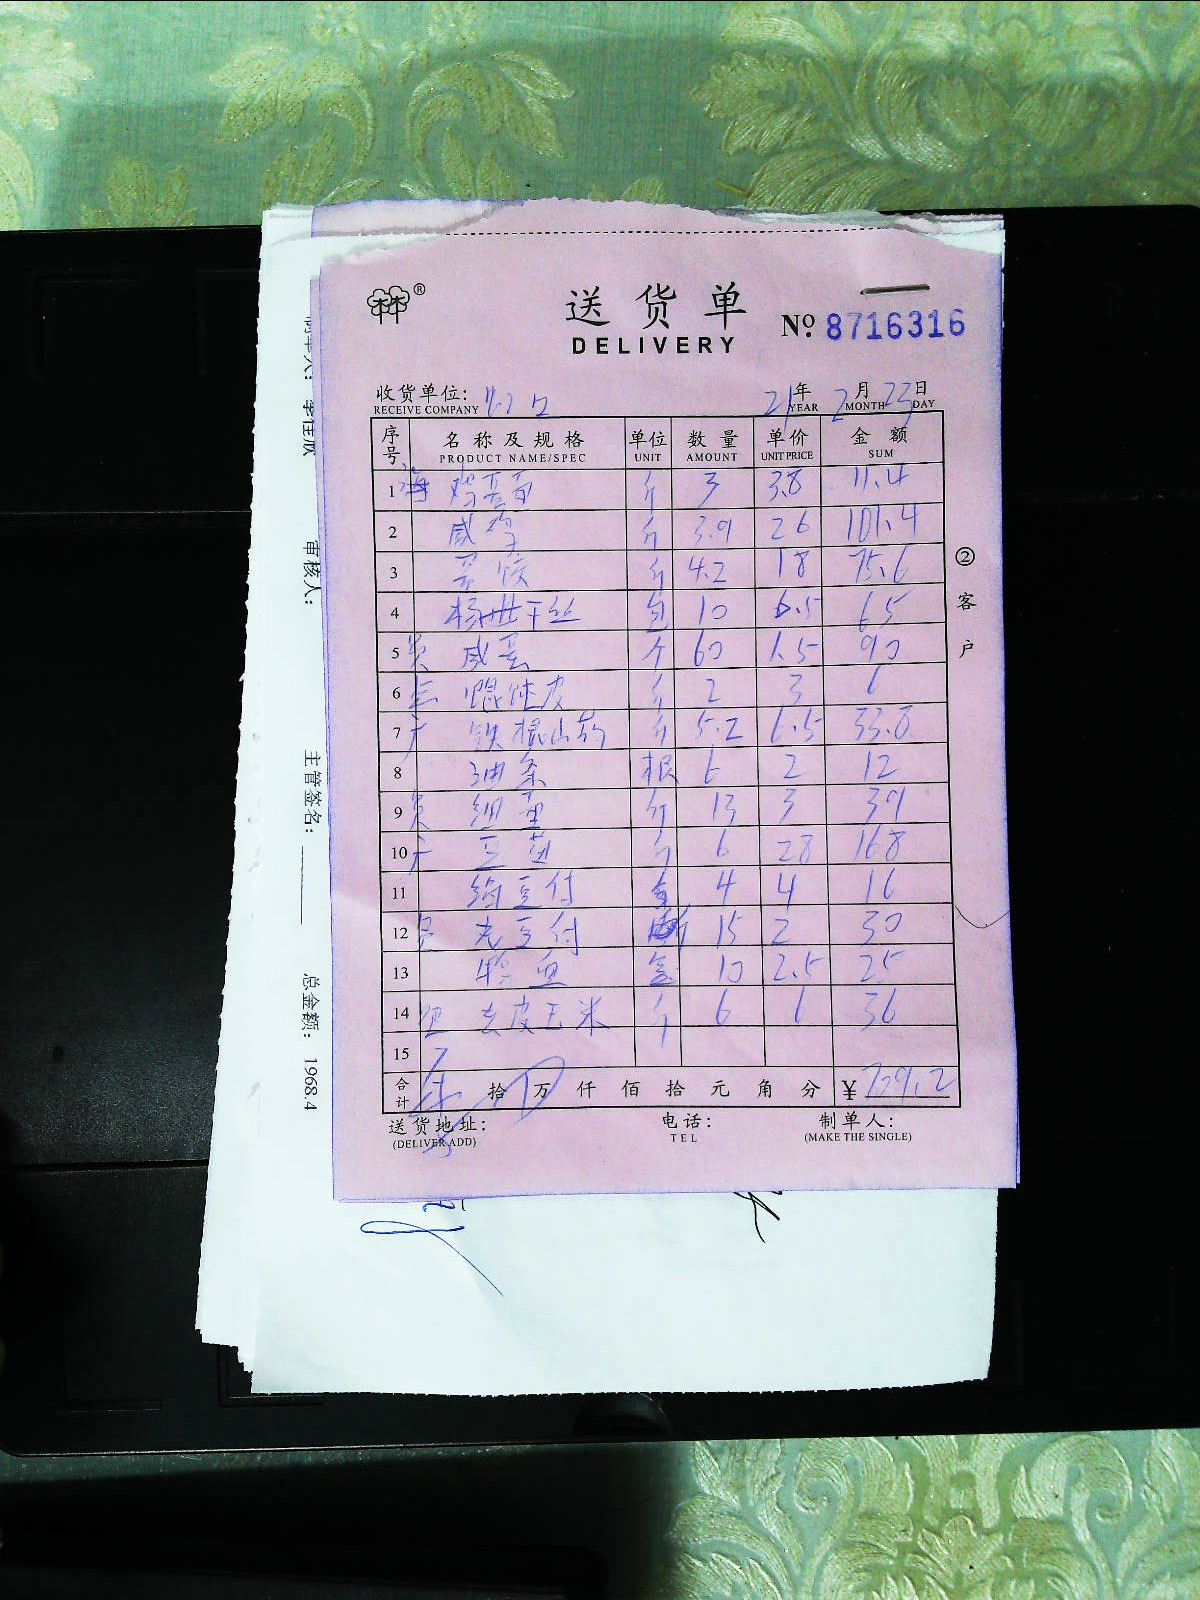 送货单
DELIVERY
№ 8716316
收货单位:
RECEIVE COMPANY
21年2月23日
YEAR MONTH DAY
序号 名称及规格 单位 数量 单价 金额
PRODUCT NAME/SPEC UNIT AMOUNT UNIT PRICE SUM
1 海 鸡蛋面 斤 3 3.8 11.4
2 咸 斤 3.9 26 101.4
3 蛋饺 斤 4.2 18 75.6
4 杨州干丝 包 10 6.5 65
5 咸蛋 个 60 1.5 90
6 馄饨皮 斤 2 3 6
7 铁棍山药 斤 5.2 6.5 33.8
8 油条 根 6 2 12
9 斤 13 3 39
10 斤 6 28 168
11 绢豆付 盒 4 4 16
12 老豆付 斤 15 2 30
13 鸭血 盒 10 2.5 25
14 去皮玉米 斤 6 6 36
15
合计 拾 万 仟 佰 拾 元 角 分 ¥709.2
送货地址:
(DELIVER ADD)
电话:
TEL
制单人:
(MAKE THE SINGLE)
②客户
审核人:
主管签名:
总金额: 1968.4